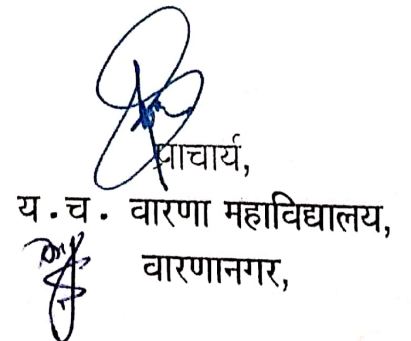 प्राचार्य,
य.च. वारणा महाविद्यालय,
वारणानगर,